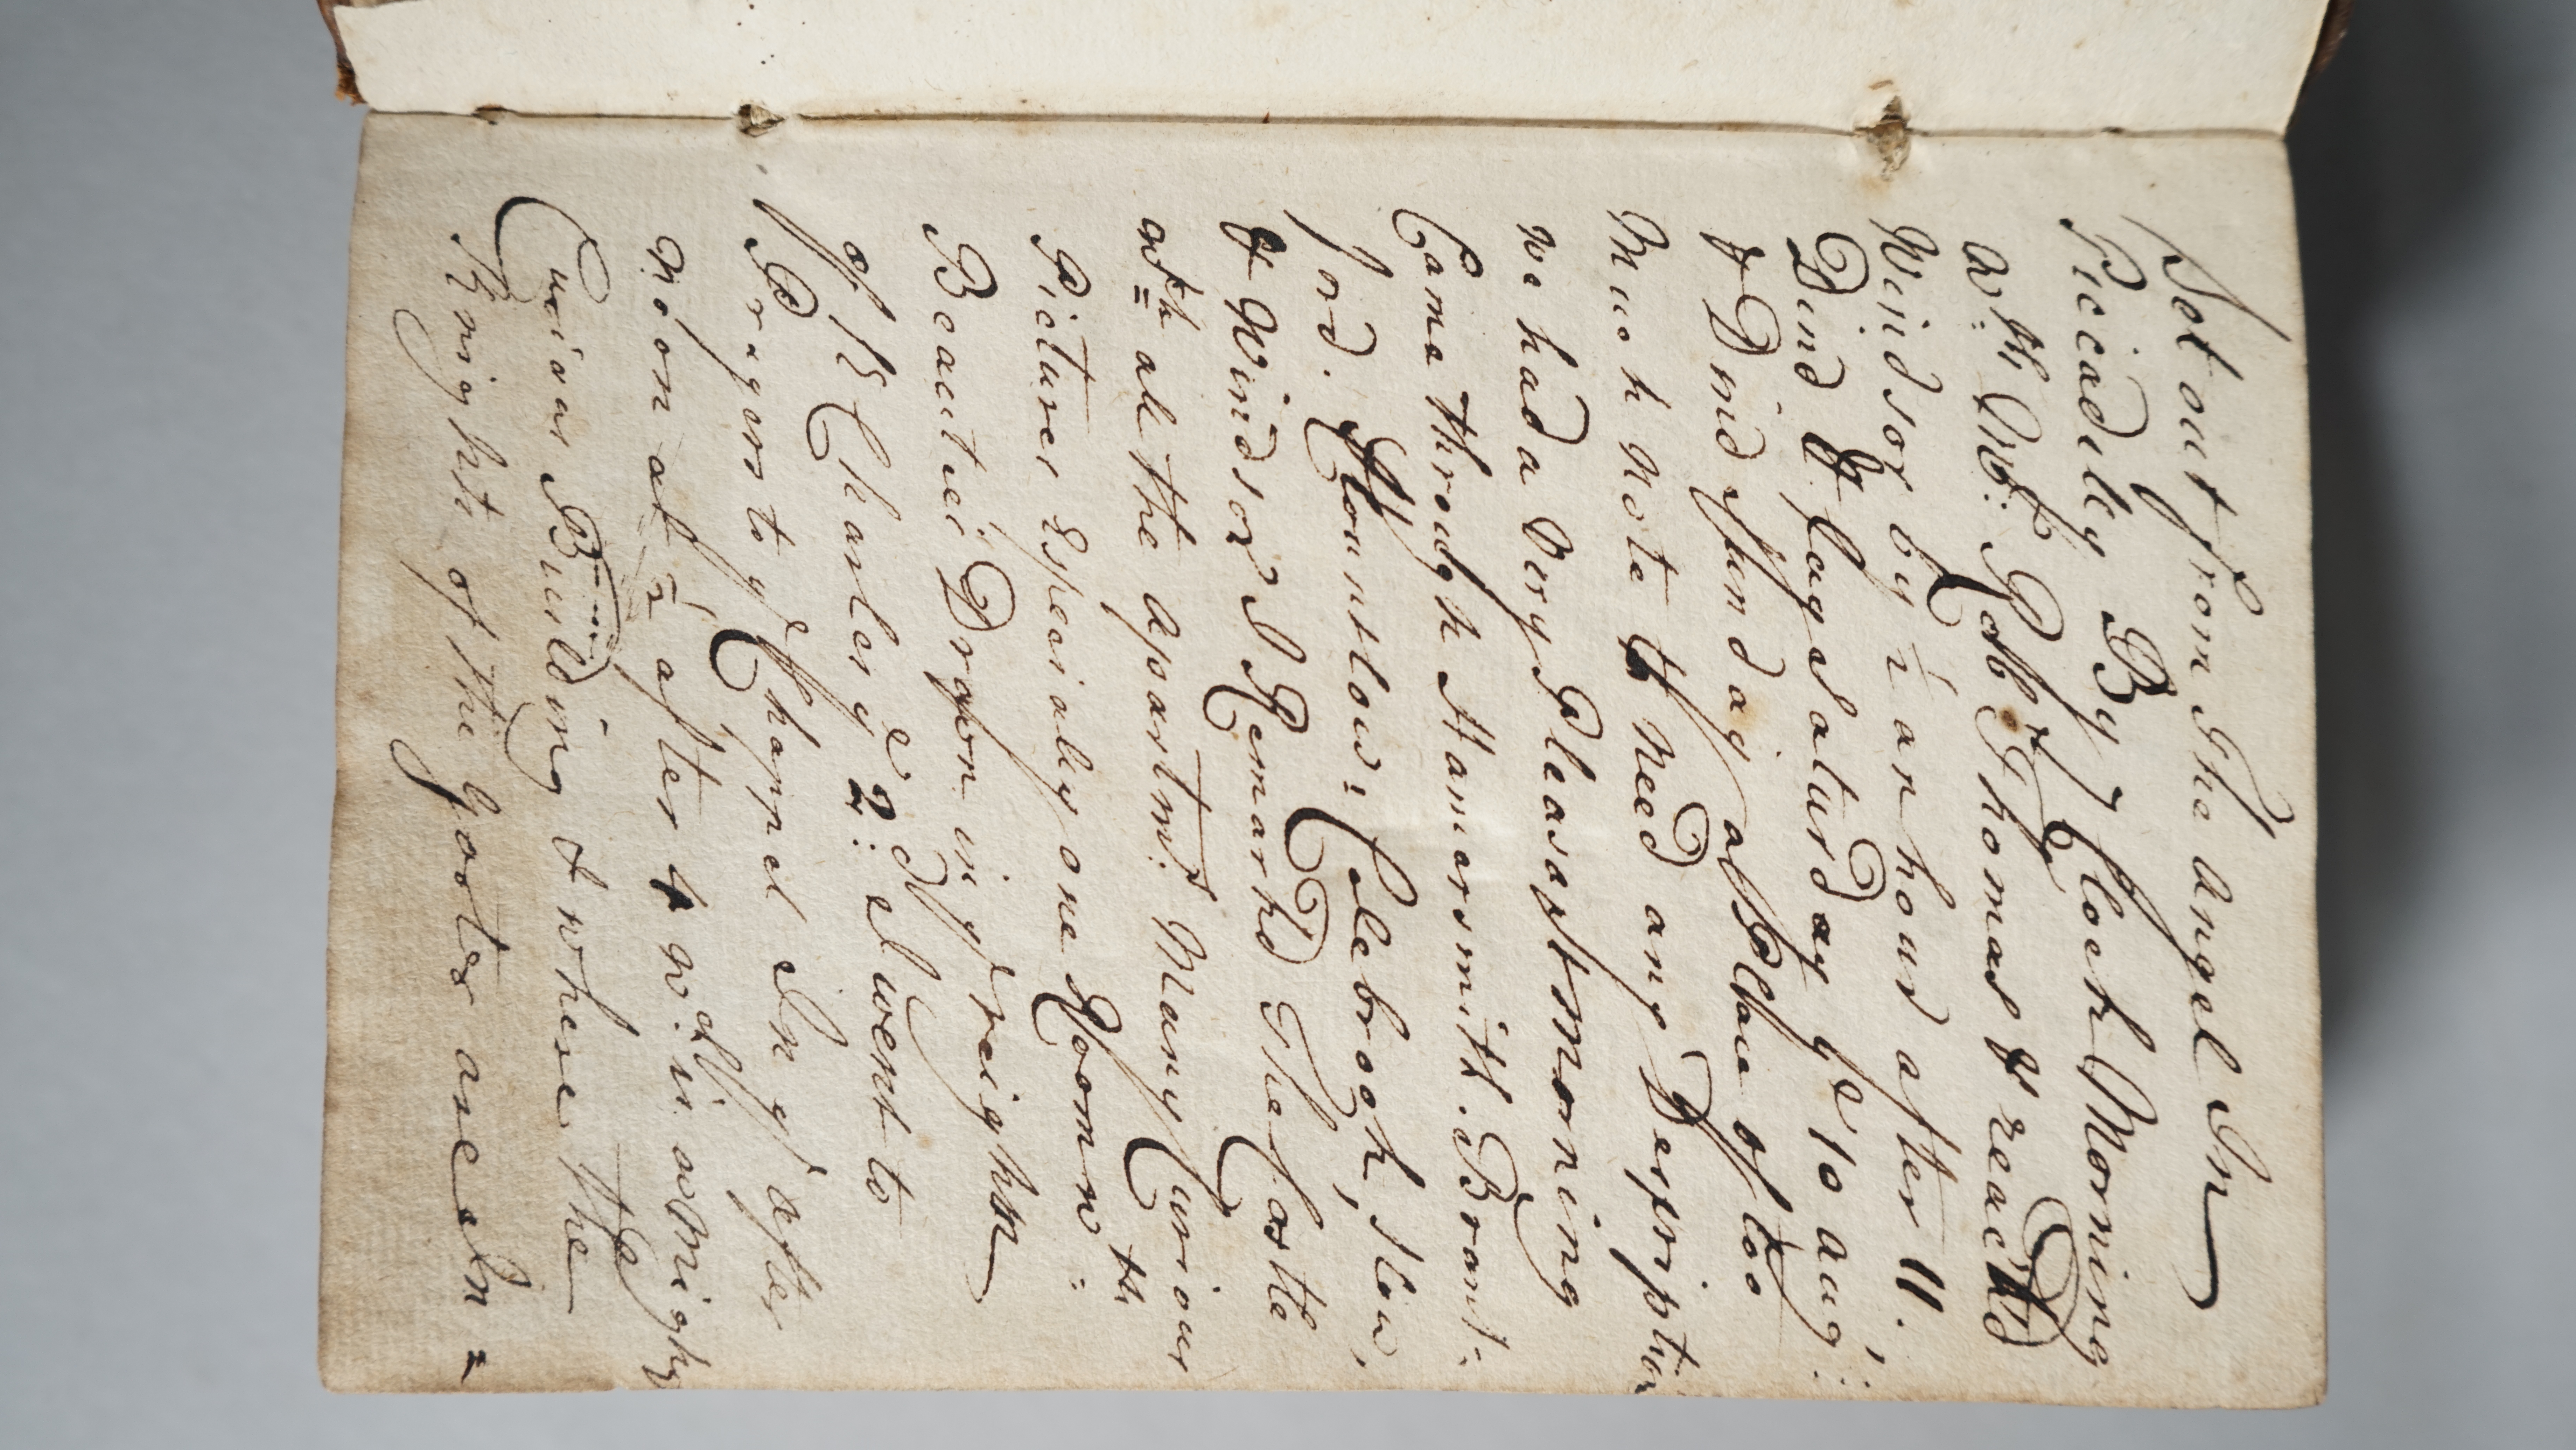 Set out from The Angel In
Piccadilly By 7 Clock Morning
wth Mr: Robt Thomas & reach'd
Windsor by ½ an hour after 11.
Din'd & Stay'd Saturday ye 10 Aug:
& Din'd Sunday a Place of too
Much Note to need any Description
we had a very Pleasast morning
Came through Hamersmith. Brant:
ford. Hounslow: Colebrogh, Slow,
& Windsor I Remark'd The Castle
wth all the apartmts. Many Curious
Pictures Especially one Room wth:
Beauties Drawn in ye reighn
of K Charles ye 2: I went to
Prayers to ye Chappel In ye after
noon at ½ after 4 wch. is a Mighty
Curious Building & where the
Knights of the Garter are In=